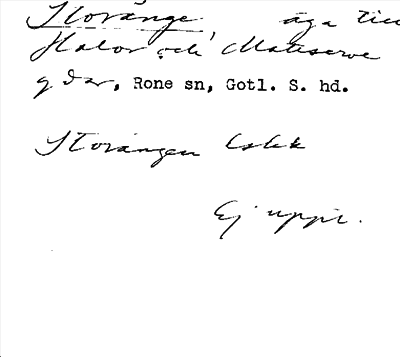 Storänge, äga till
Halor och Mattserve
gdar, Rone sn, Gotl. S. hd.
Storängen Eslek
Ej uppr.